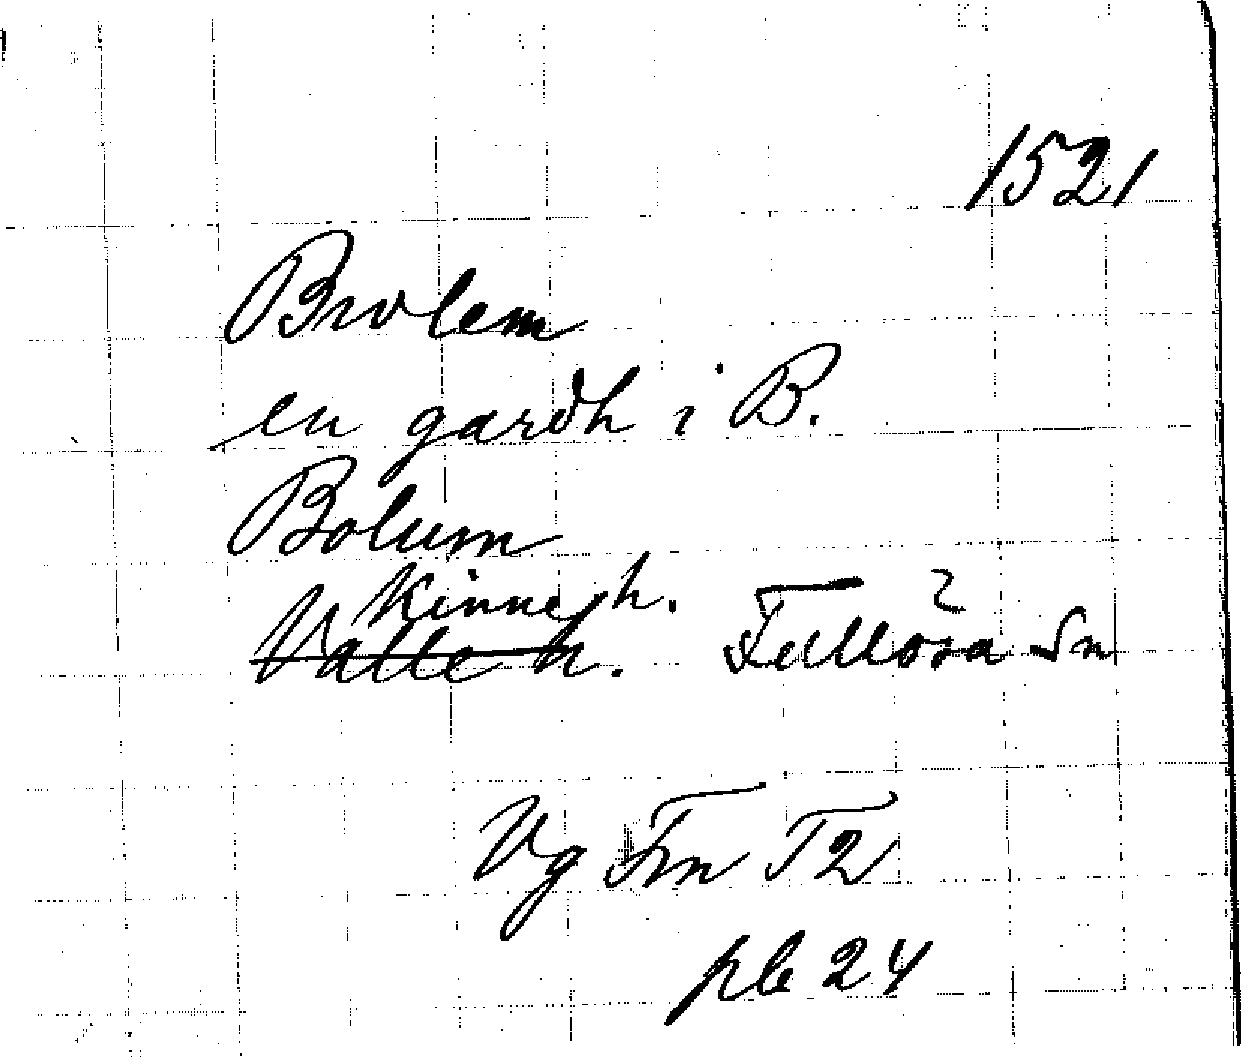 1521
Brolem
en gardh i B.
Bolum
Kinne h.
Valle h. Fullösa Sn ?
Vg Fm T2
pb 24